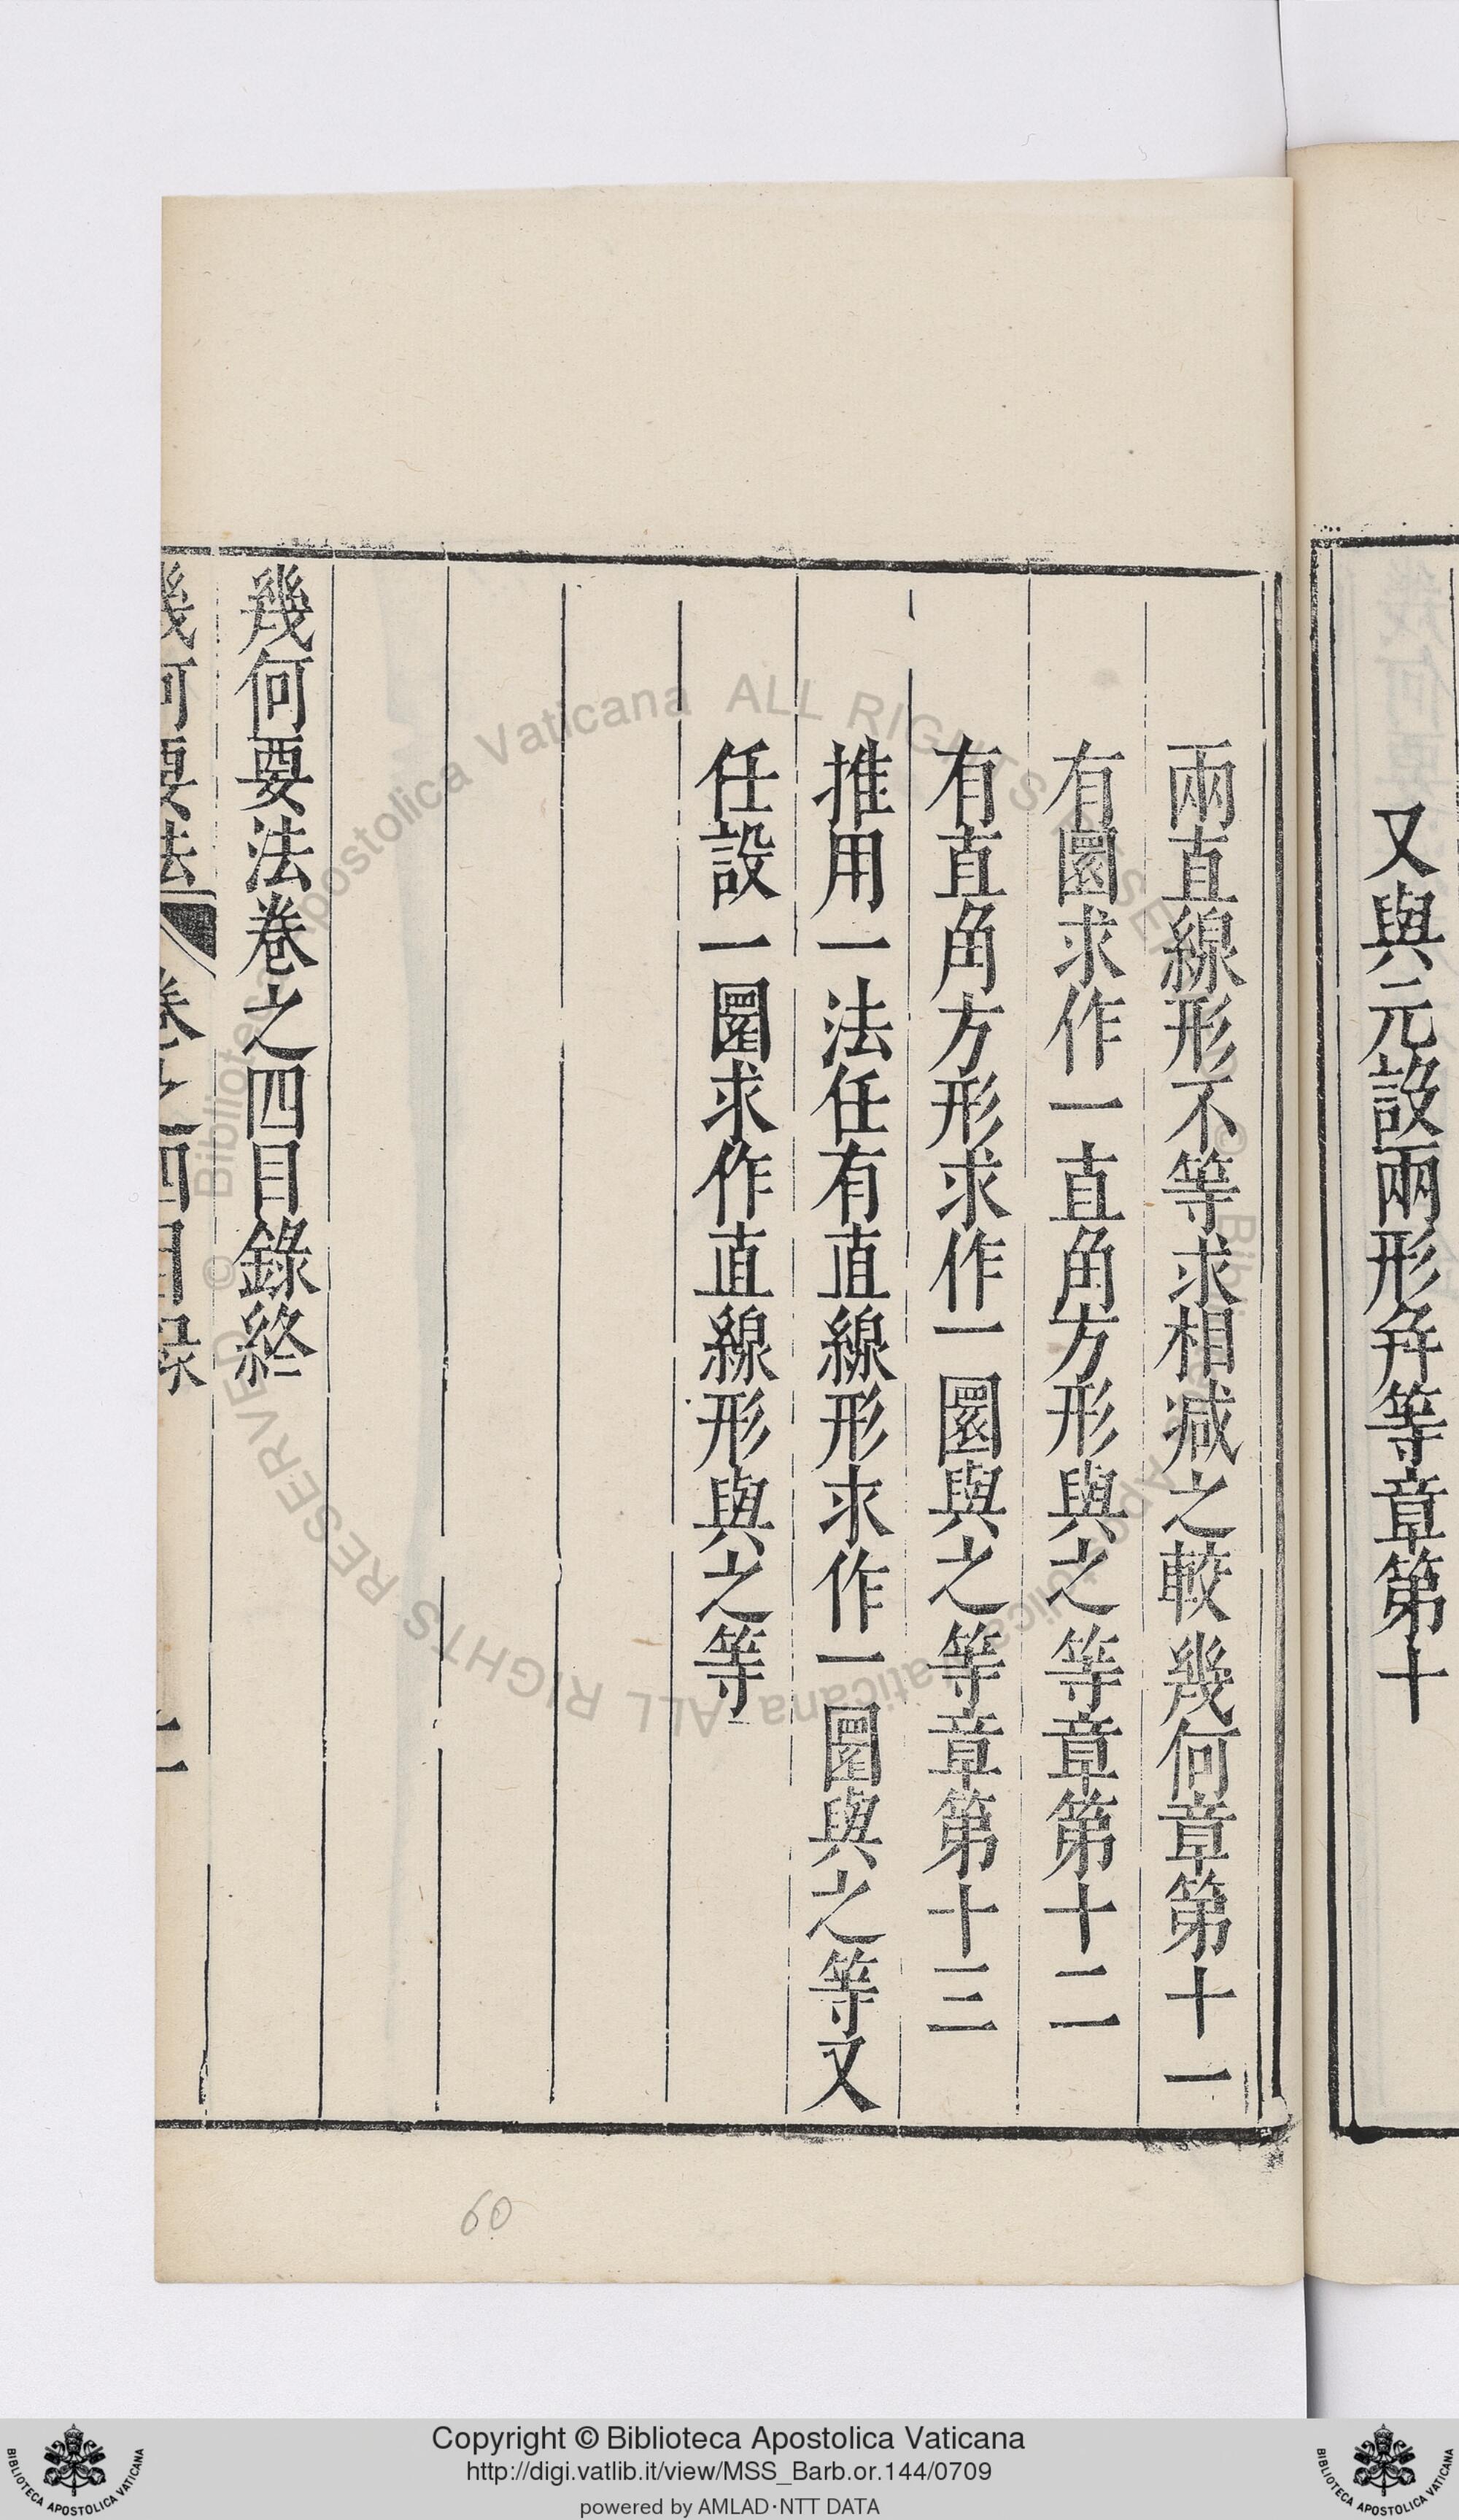 又與元設兩形幷等章第十
兩直線形不等求相減之較幾何章第十一
有圜求作一直角方形與之等章第十二
有直角方形求作一圜與之等章第十三
推用一法任有直線形求作一圜與之等又
任設一圜求作直線形與之等
幾何要法卷之四目錄終
幾何要法 卷之四目錄
60
© Biblioteca Apostolica Vaticana ALL RIGHTS RESERVED
© Biblioteca Apostolica Vaticana ALL RIGHTS RESERVED
Copyright © Biblioteca Apostolica Vaticana
http://digi.vatlib.it/view/MSS_Barb.or.144/0709
powered by AMLAD·NTT DATA
BIBLIOTECA APOSTOLICA VATICANA
BIBLIOTECA APOSTOLICA VATICANA